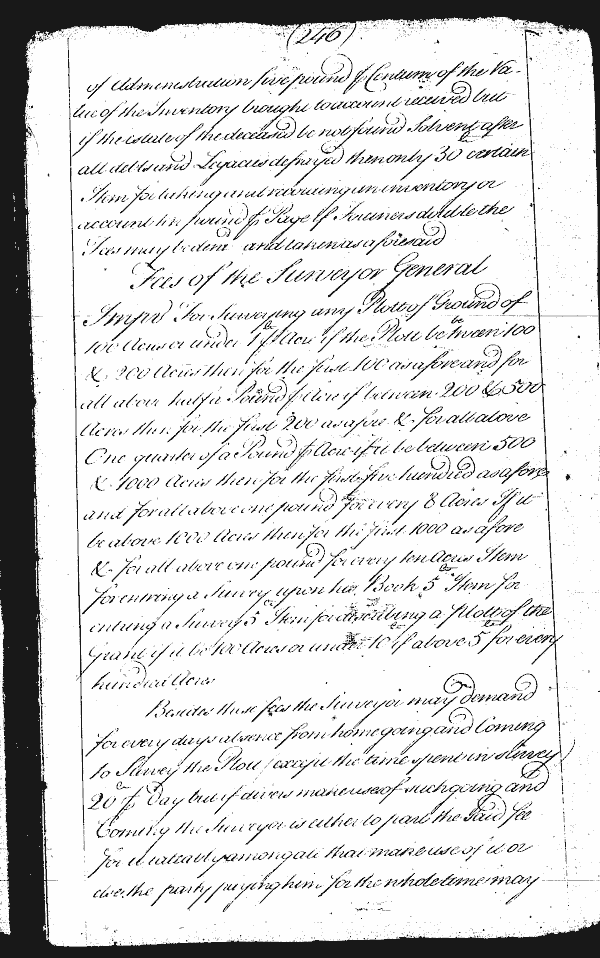 (246)
of Administration five pound ⅌ Centum of the Va-
lue of the Inventory brought to account received but
if the estate of the deceased be not found Solvent after
all debts and Legacies defrayed then only 30 certain
Item for taking and receiving an inventory or
account ten pound ⅌ Page If Towners double the
Fees may be dem and taken as aforesaid
Fees of the Surveyor General
Impr For Surveying any Plott of Ground of
100 Acres or under 1 ⅌ Acre if the Plott be tween 100
&. 200 Acres then for the first 100 as afore and for
all above half a Pound ⅌ Acre if between 200 & 500
Acres then for the first 200 as afore &. for all above
One quarter of a Pound ⅌ Acre if it be between 500
&. 1000 Acres then for the first five hundred as afore
and for all above one pound for every 8 Acres If it
be above 1000 Acres then for the first 1000 as afore
&. for all above one pound for every ten Acres Item
for entring a Survey upon his Book 5 Item for
entring a Survey 5 Item for describing a Plott of the
Grant if it be 100 Acres or under 10 if above 5 for every
hundred Acres
Besides these fees the Surveyor may demand
for every days absence from home going and Coming
to Survey the Plott (except the time spent in Survey)
20 ⅌ Day but if divers make use of such going and
Coming the Surveyor is either to part the Said fee
for it ratably among all that make use of it or
else the party paying him for the whole time may